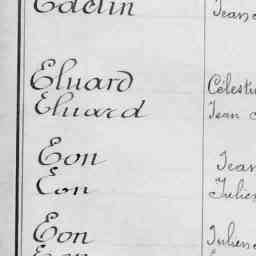 Edelin
Eluard Célesti
Eluard Jean
Eon Jean
Eon Julien
Eon Julien